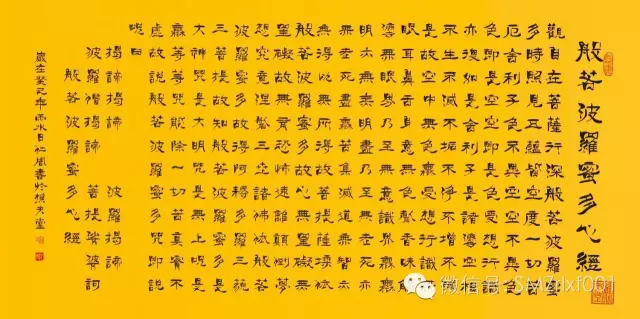 般若波羅蜜多心經
觀自在菩薩行深般若波羅蜜
多時照見五蘊皆空度一切苦
厄舍利子色不異空空不異色
色即是空空即是色受想行識
亦復如是舍利子是諸法空相
不生不滅不垢不淨不增不減
是故空中無色無受想行識無
眼耳鼻舌身意無色聲香味觸
法無眼界乃至無意識界無無
明亦無無明盡乃至無老死亦
無老死盡無苦集滅道無智亦
無得以無所得故菩提薩埵依
般若波羅蜜多故心無罣礙無
罣礙故無有恐怖遠離顛倒夢
想究竟涅槃三世諸佛依般若
波羅蜜多故得阿耨多羅三藐
三菩提故知般若波羅蜜多是
大神呪是大明呪是無上呪是
無等等呪能除一切苦真實不
虛故說般若波羅蜜多呪即說
呪曰
揭諦揭諦 波羅揭諦
波羅僧揭諦 菩提薩婆訶
般若波羅蜜多心經
歲在癸巳年雨水日
微信号: SMZdxf001